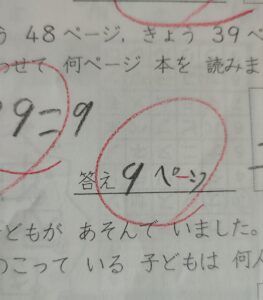 う 48 ページ, きょう 39 ペ
わせて 何ページ 本を 読みま
9=9
答え 9 ページ
どもが あそんで いました。
のこって いる 子どもは 何人